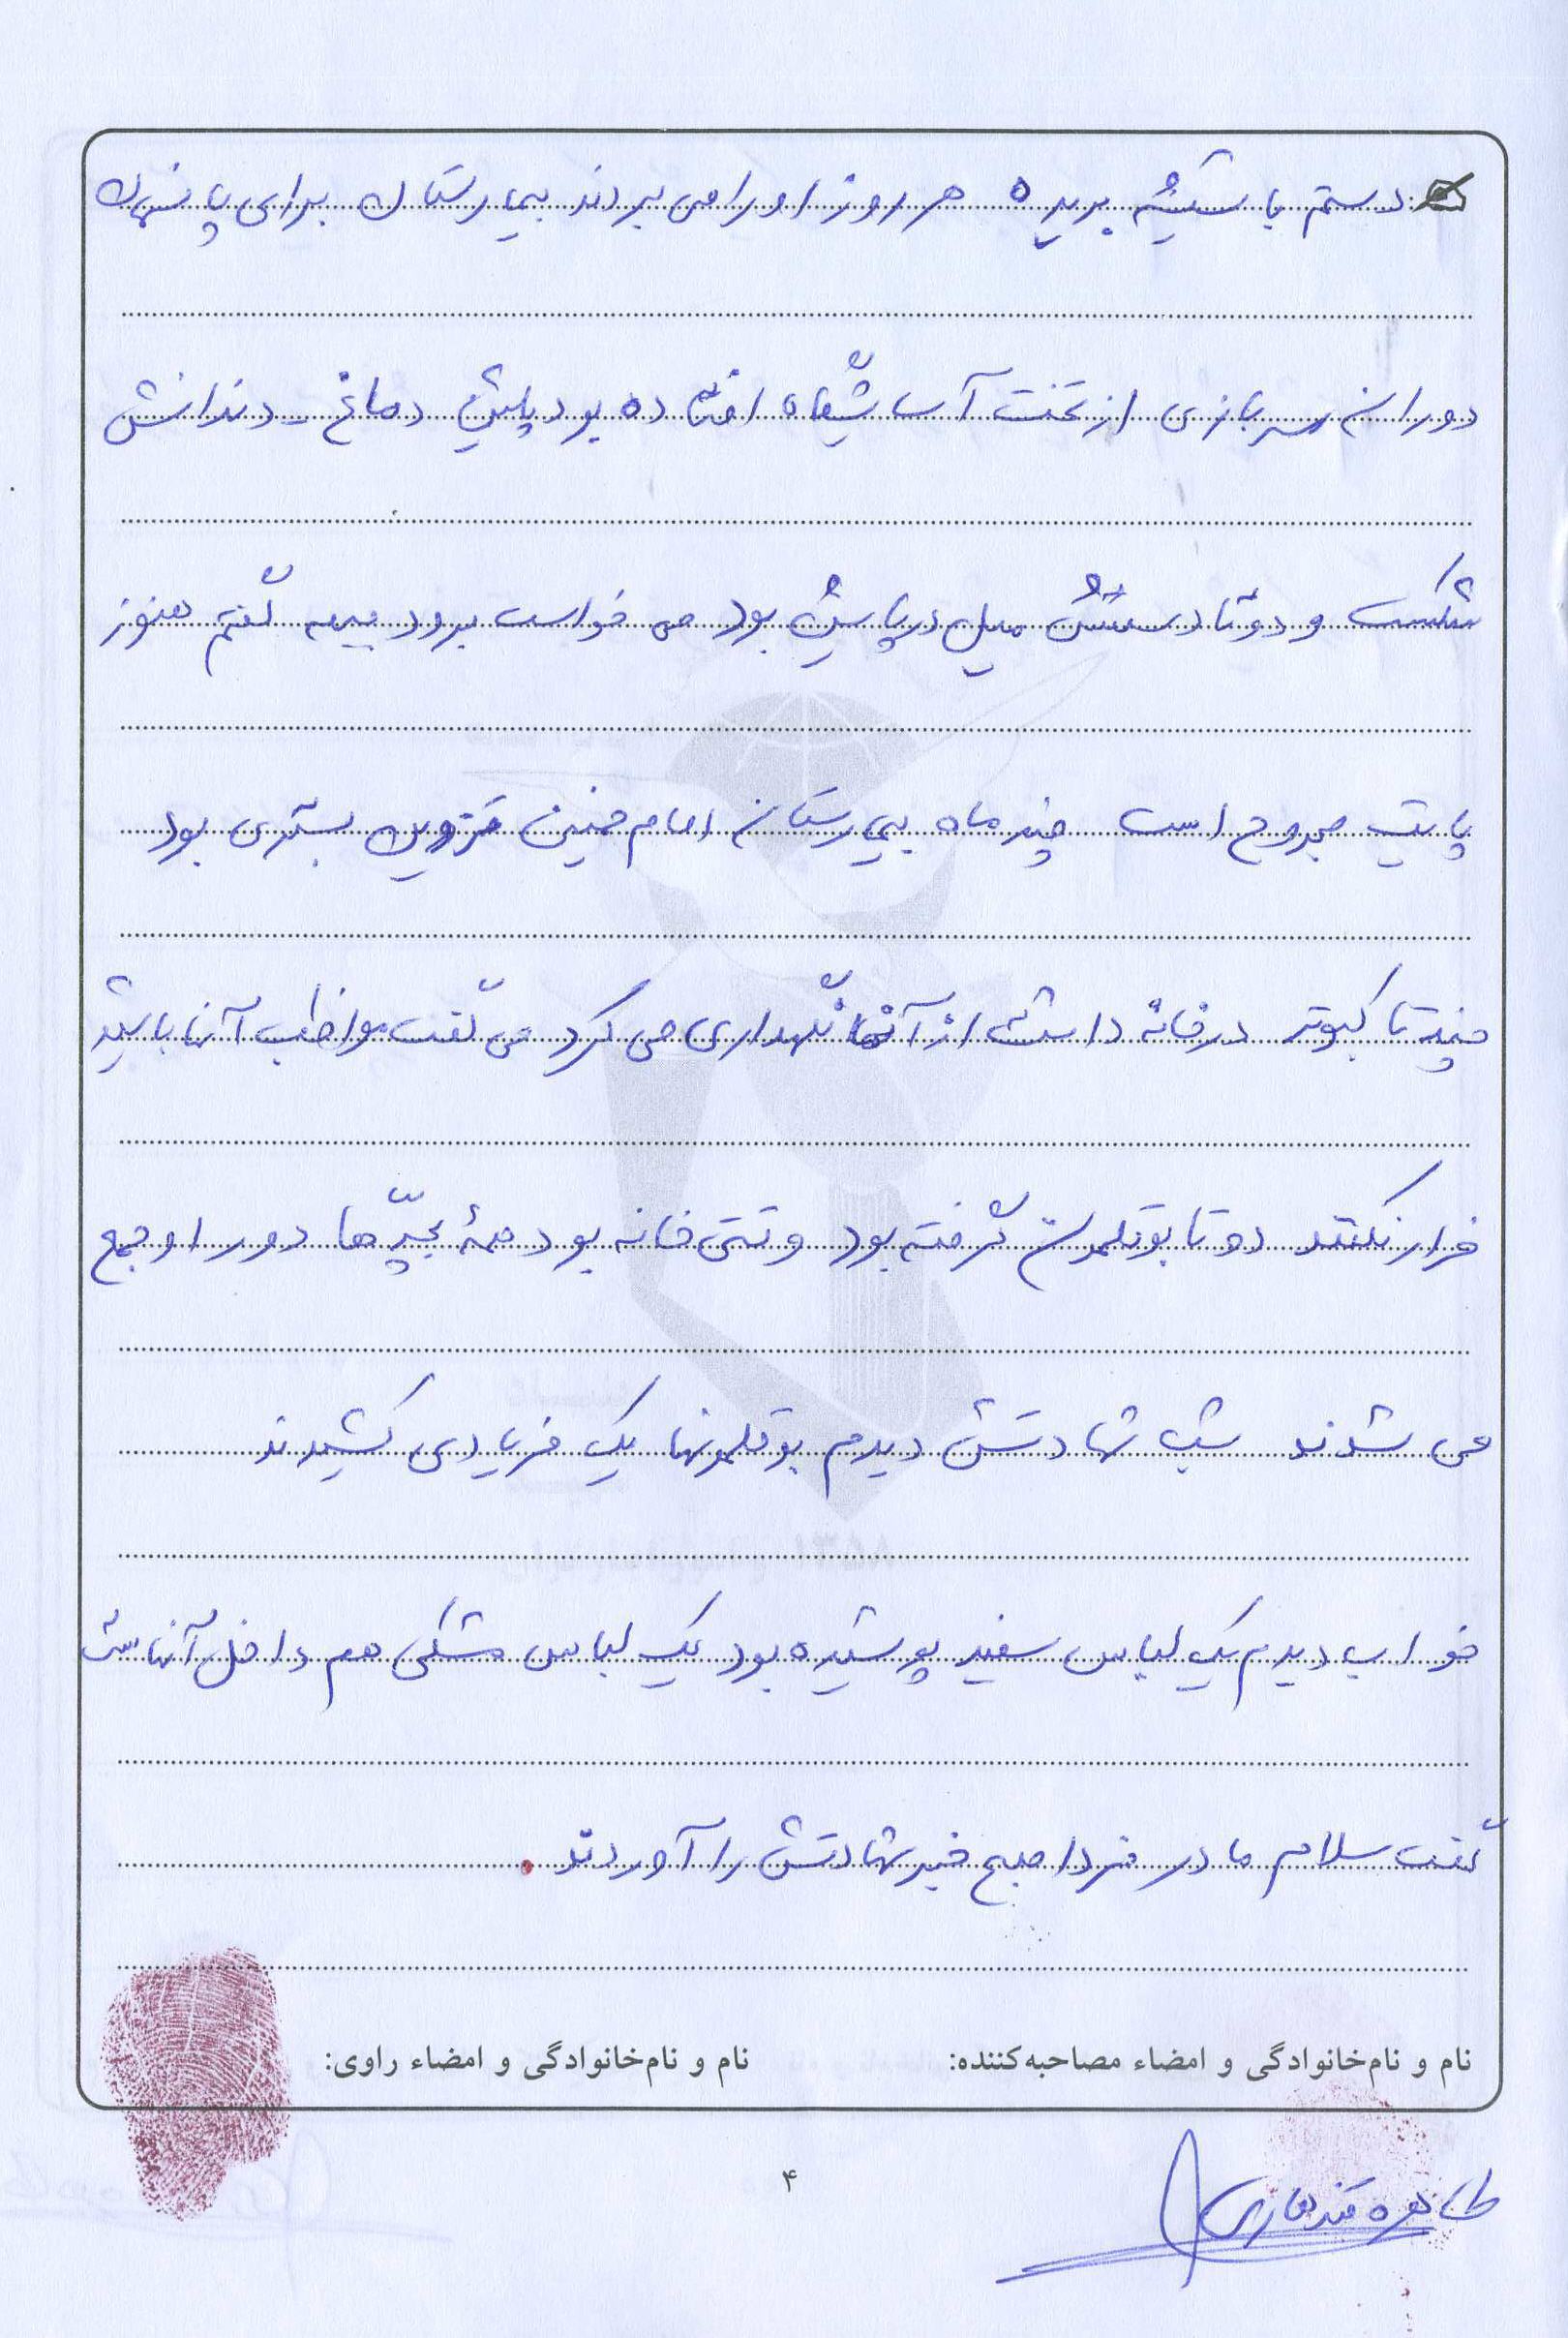 دستم با شیشه بریده هر روز او را می بردند بیمارستان برای پانسمان
دوران سربازی از تخت آسایشگاه افتاده بود پلیش دماغ - دندانش
شکست و دو تا دستش میل در پایش بود می خواست برود جبهه گفتم هنوز
پایت مجروح است چند ماه بیمارستان امام خمینی قزوین بستری بود
چند تا کبوتر در خانه داشت از آنها نگهداری می کرد می گفت مواظب آنها باشید
فرار نکنند دو تا بوقلمون گرفته بود وقتی خانه بود همۀ بچّه ها دور او جمع
می شدند شب شهادتش دیدم بوقلمونها یک فریادی کشیدند
خواب دیدم یک لباس سفید پوشیده بود یک لباس مشکی هم داخل آنهاست
گفت سلام مادر فردا صبح خبر شهادتش را آوردند.
نام و نام‌خانوادگی و امضاء مصاحبه‌کننده: نام و نام‌خانوادگی و امضاء راوی:
طاهره قندهاری
۴